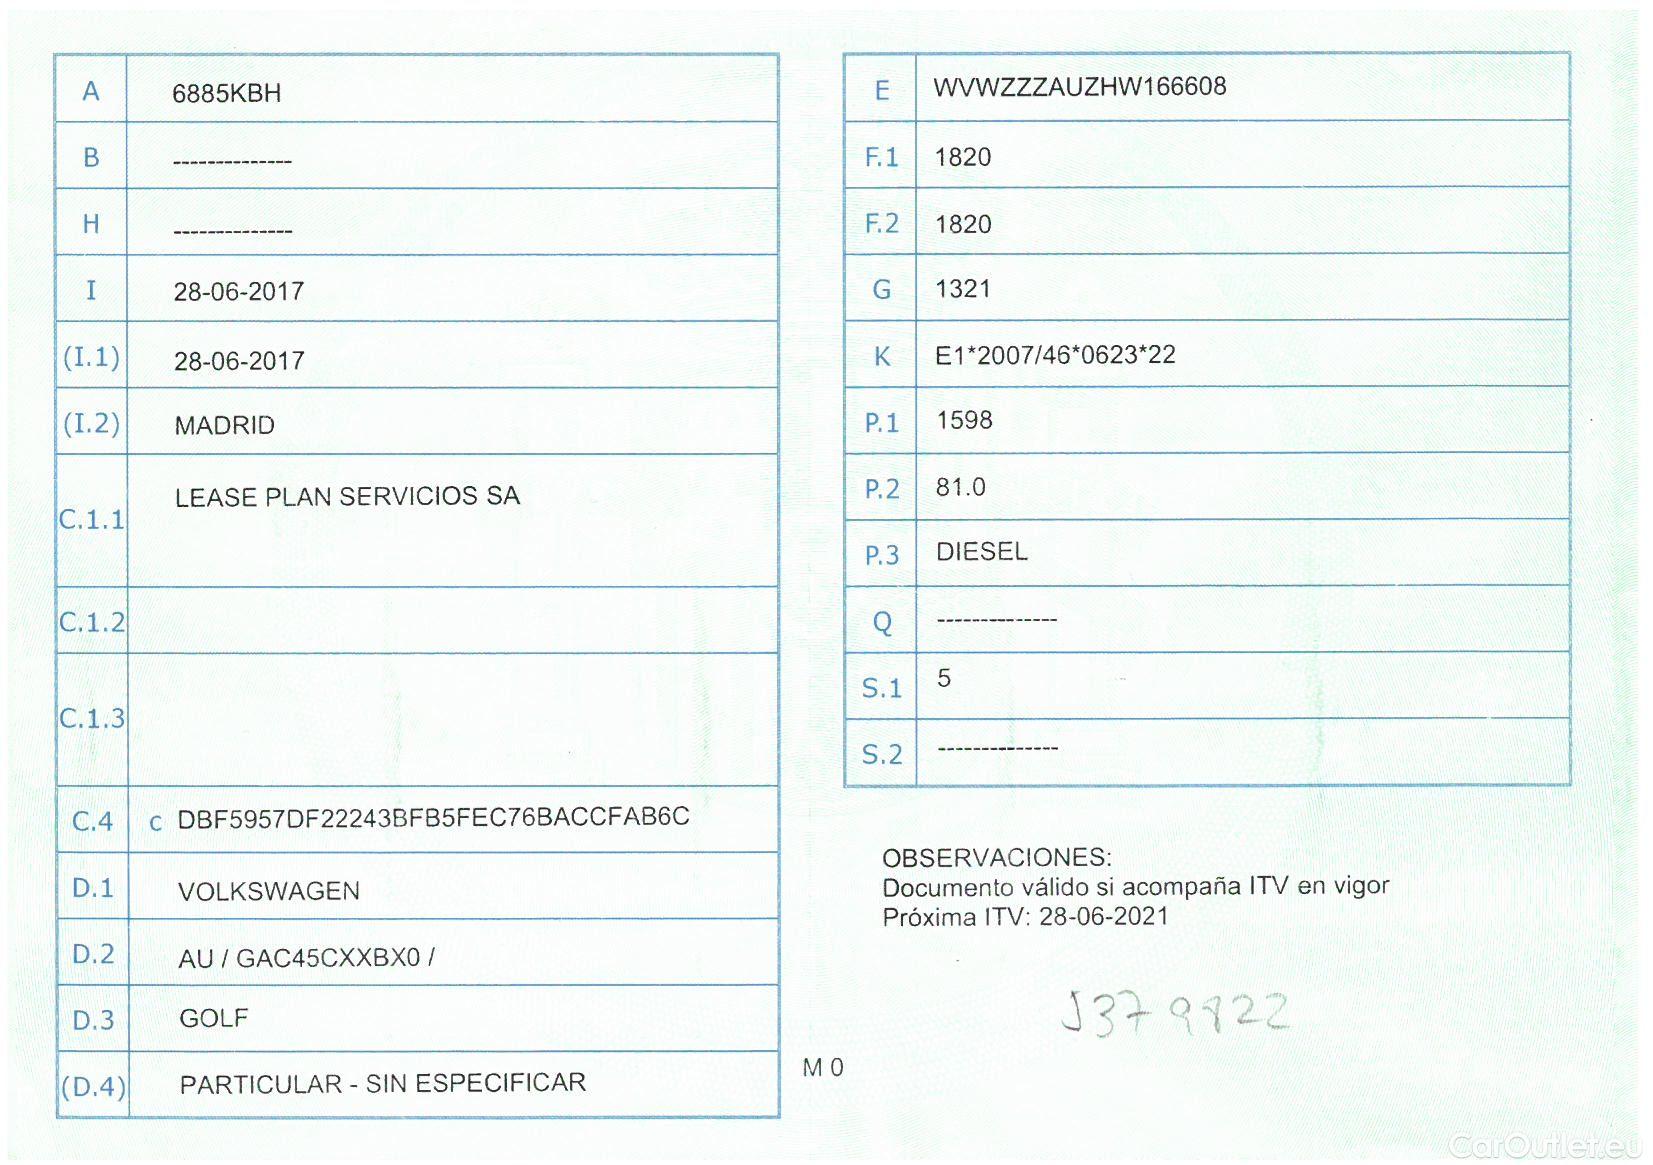 A 6885KBH
B --------------
H --------------
I 28-06-2017
(I.1) 28-06-2017
(I.2) MADRID
C.1.1 LEASE PLAN SERVICIOS SA
C.1.2
C.1.3
C.4 c DBF5957DF22243BFB5FEC76BACCFAB6C
D.1 VOLKSWAGEN
D.2 AU / GAC45CXXBX0 /
D.3 GOLF
(D.4) PARTICULAR - SIN ESPECIFICAR
E WVWZZZAUZHW166608
F.1 1820
F.2 1820
G 1321
K E1*2007/46*0623*22
P.1 1598
P.2 81.0
P.3 DIESEL
Q --------------
S.1 5
S.2 --------------
OBSERVACIONES:
Documento válido si acompaña ITV en vigor
Próxima ITV: 28-06-2021
J379822
M 0
CarOutlet.eu